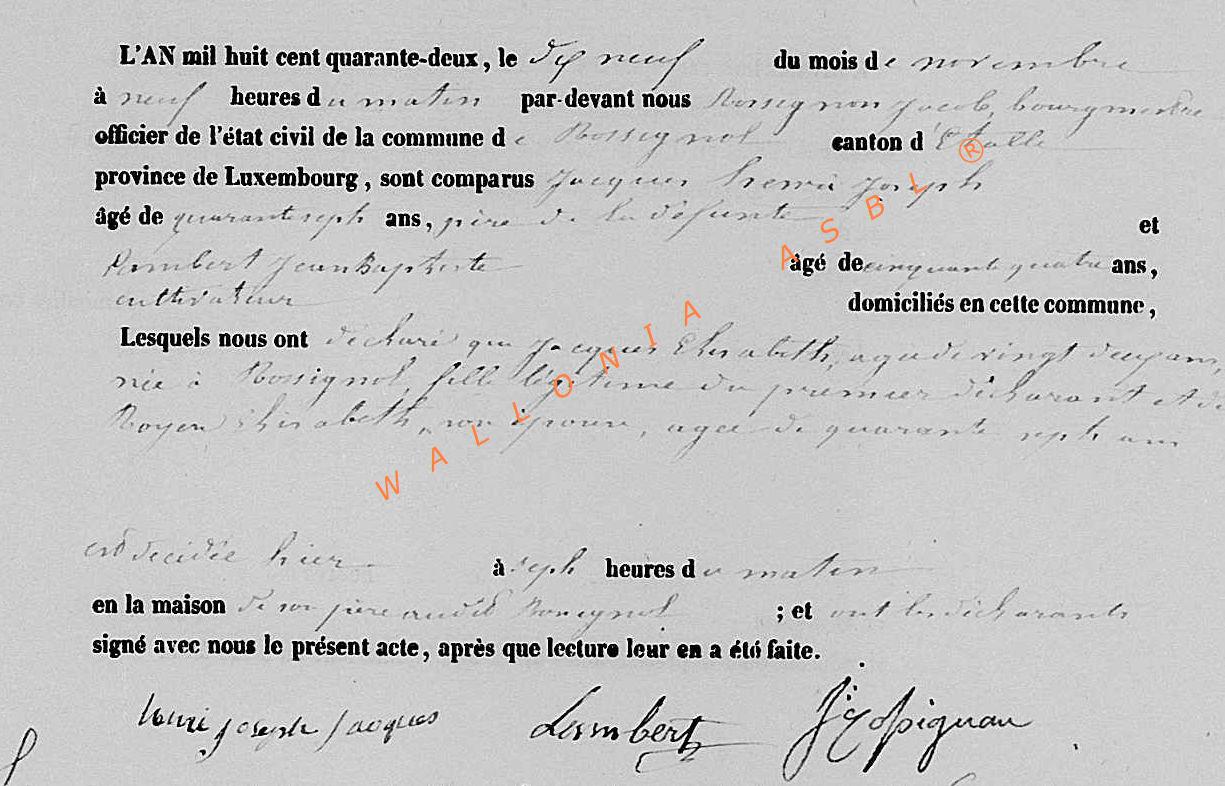 L'AN mil huit cent quarante-deux, le dix neuf du mois de novembre
à neuf heures du matin par-devant nous Rossignon Jacob, bourgmestre
officier de l'état civil de la commune de Rossignol canton d'Etalle
province de Luxembourg, sont comparus Jacques henri joseph
âgé de quarante seph ans, père de la défunte et
Lambert Jean Baptiste âgé de cinquante quatre ans,
cultivateur domiciliés en cette commune,
Lesquels nous ont déclaré que Jacques Elisabeth, agée de vingt deux ans,
née à Rossignol, fille légitime du premier déclarant et de
Elisabeth, son épouse, agée de quarante seph ans
est décidée hier à seph heures du matin
en la maison de son père audit Rossignol ; et ont les déclarants
signé avec nous le présent acte, après que lecture leur en a été faite.
henri joseph jacques Lambert
WALLONIA ASBL ®